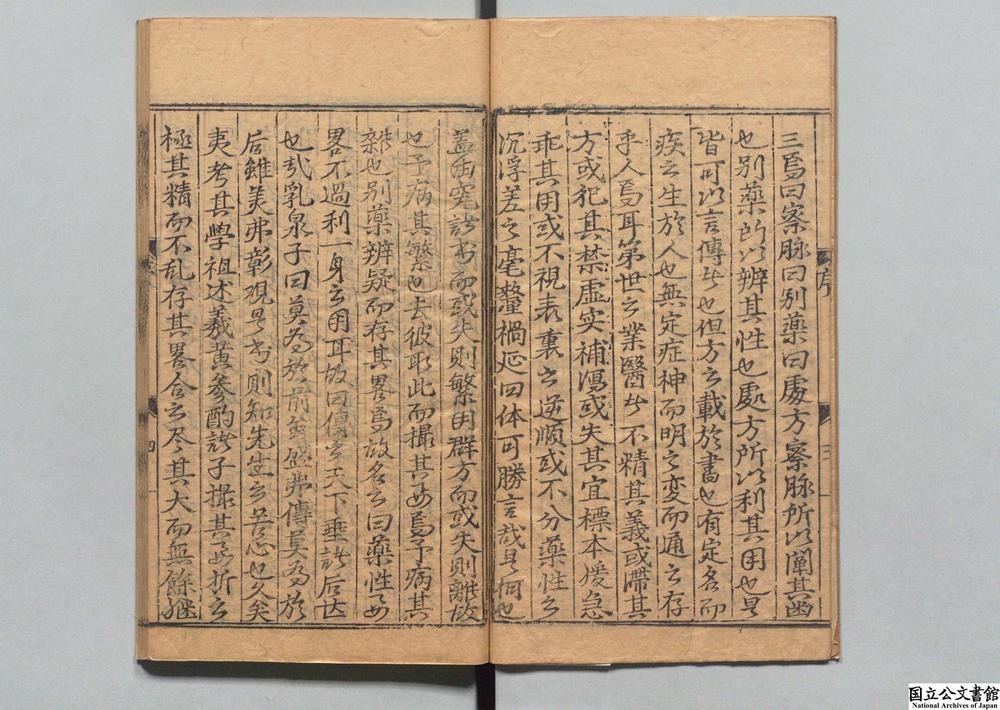 三焉曰察脉曰别藥曰處方察脉所以闡其幽
也别藥所以辨其性也處方所以利其用也是
皆可以言傳者也但方之載於書也有定名而
疾之生於人也無定症神而明之変而通之存
乎人焉耳第世之業醫者不精其義或滯其
方或犯其禁虚实補瀉或失其宜標本媛急
乖其用或不視表裏之逆順或不分藥性之
沉浮差之毫釐禍延四体可勝言哉是何也
盖由究諸书而或失則繁用群方而或失則雜故
也予病其繁也去彼取此而撮其要焉予病其
雜也别藥辨疑而存其畧焉故名之曰藥性要
畧不過利一身之用耳故曰傳之天下垂諸后世
也哉乳泉子曰莫為於前虽盛弗傳莫為於
后雖美弗彰观是书則知先生之苦心也久矣
夷考其學祖述羲黄參酌諸子撮其要折之
極其精而不乱存其畧合之尽其大而無餘継
序
三
四
国立公文書館
National Archives of Japan